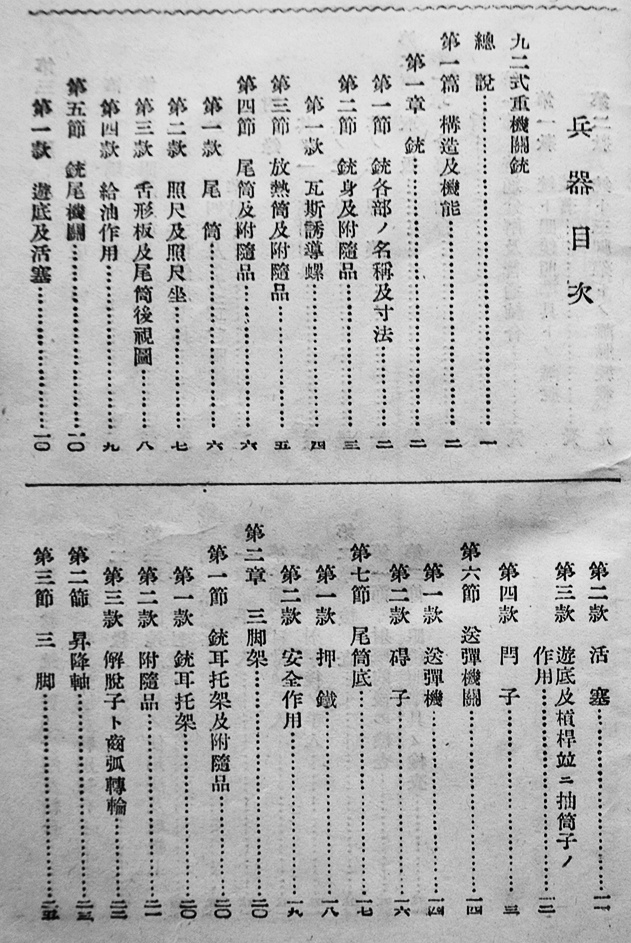 兵器目次
九二式重機關銃
總說…………一
第一篇 構造及機能…………二
第一章 銃…………二
第一節 銃各部ノ名稱及寸法…………二
第二節 銃身及附隨品…………三
第一款 瓦斯誘導螺…………四
第三節 放熱筒及附隨品…………五
第四節 尾筒及附隨品…………六
第一款 尾筒…………六
第二款 照尺及照尺坐…………七
第三款 舌形板及尾筒後視圖…………八
第四款 給油作用…………九
第五節 銃尾機關…………一〇
第一款 遊底及活塞…………一〇
第二款 活塞…………一一
第三款 遊底及槓桿竝ニ抽筒子ノ
作用…………一二
第四款 閂子…………一三
第六節 送彈機關…………一四
第一款 送彈機…………一四
第二款 碍子…………一六
第七節 尾筒底…………一七
第一款 押鐵…………一八
第二款 安全作用…………一九
第二章 三脚架…………二〇
第一節 銃耳托架及附隨品…………二〇
第一款 銃耳托架…………二〇
第二款 附隨品…………二一
第三款 解脫子ト齒弧轉輪…………二二
第二節 昇降軸…………二三
第三節 三脚…………二五